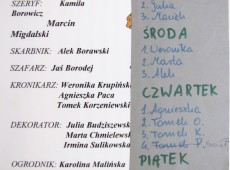 SZERYF: Kamila
Borowicz
Marcin
Migdalski
SKARBNIK: Alek Borawski
SZAFARZ: Jaś Borodej
KRONIKARZ: Weronika Krupińska
Agnieszka Paca
Tomek Korzeniewski
DEKORATOR: Julia Budziszewska
Marta Chmielewska
Irmina Sulikowska
OGRODNIK: Karolina Malińska
2. Julia
3.
ŚRODA
1. Weronika
2. Marta
3. Alek
CZWARTEK
1. Agnieszka
2. Tomek O.
3. Tomek K.
4. Tomek P.
PIĄTEK